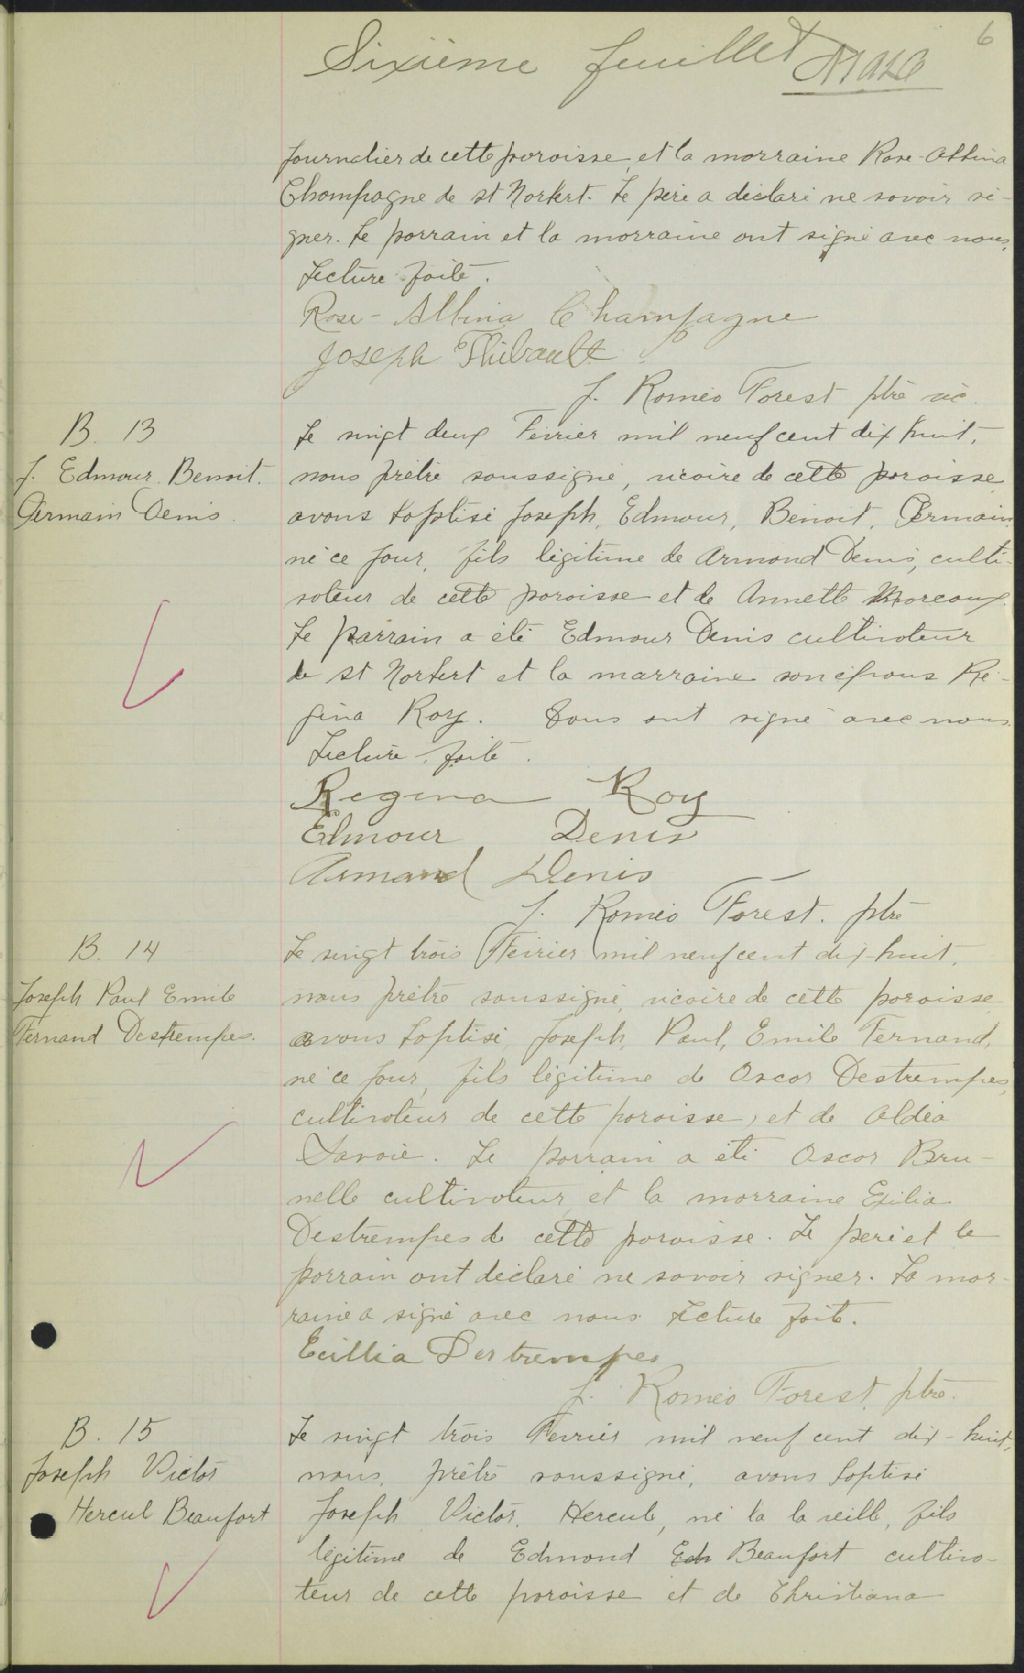 6
Sixième feuillet
journalier de cette paroisse, et la marraine Rose-Albina
Champagne de st Norbert. Le père a déclaré ne savoir si-
gner. Le parrain et la marraine ont signé avec nous.
Lecture faite.
Rose-Albina Champagne
Joseph Thibault
J. Roméo Forest ptre vic.
B. 13
J. Edmour Benoit.
Germain Denis
Le vingt deux Février mil neuf cent dix huit,
nous prêtre soussigné, vicaire de cette paroisse
avons baptisé Joseph, Edmour, Benoit, Germain
né ce jour, fils légitime de Armand Denis, culti-
vateur de cette paroisse et de Annette Marcoux.
Le parrain a été Edmour Denis cultivateur
de st Norbert et la marraine son épouse Ré-
gina Roy. Tous ont signé avec nous.
Lecture faite.
Regina Roy
Elmour Denis
Armand Denis
J. Roméo Forest. ptre
B. 14
Joseph Paul Emile
Fernand Destrempes.
Le vingt trois Février mil neuf cent dix-huit,
nous prêtre soussigné, vicaire de cette paroisse
avons baptisé, Joseph, Paul, Emile Fernand,
né ce jour, fils légitime de Oscar Destrempes,
cultivateur de cette paroisse, et de Aldéa
Savoie. Le parrain a été Oscar Bru-
nelle cultivateur, et la marraine Exilia
Destrempes de cette paroisse. Le père et le
parrain ont déclaré ne savoir signer. La mar-
raine a signé avec nous. Lecture faite.
Ecillia Destrempes
J. Roméo Forest, ptre.
B. 15
Joseph Victor
Hercul Beaufort
Le vingt trois Février mil neuf cent dix-huit,
nous, prêtre soussigné, avons baptisé
Joseph, Victor, Hercule, né la la veille, fils
légitime de Edmond Beaufort cultiva-
teur de cette paroisse et de Christiana